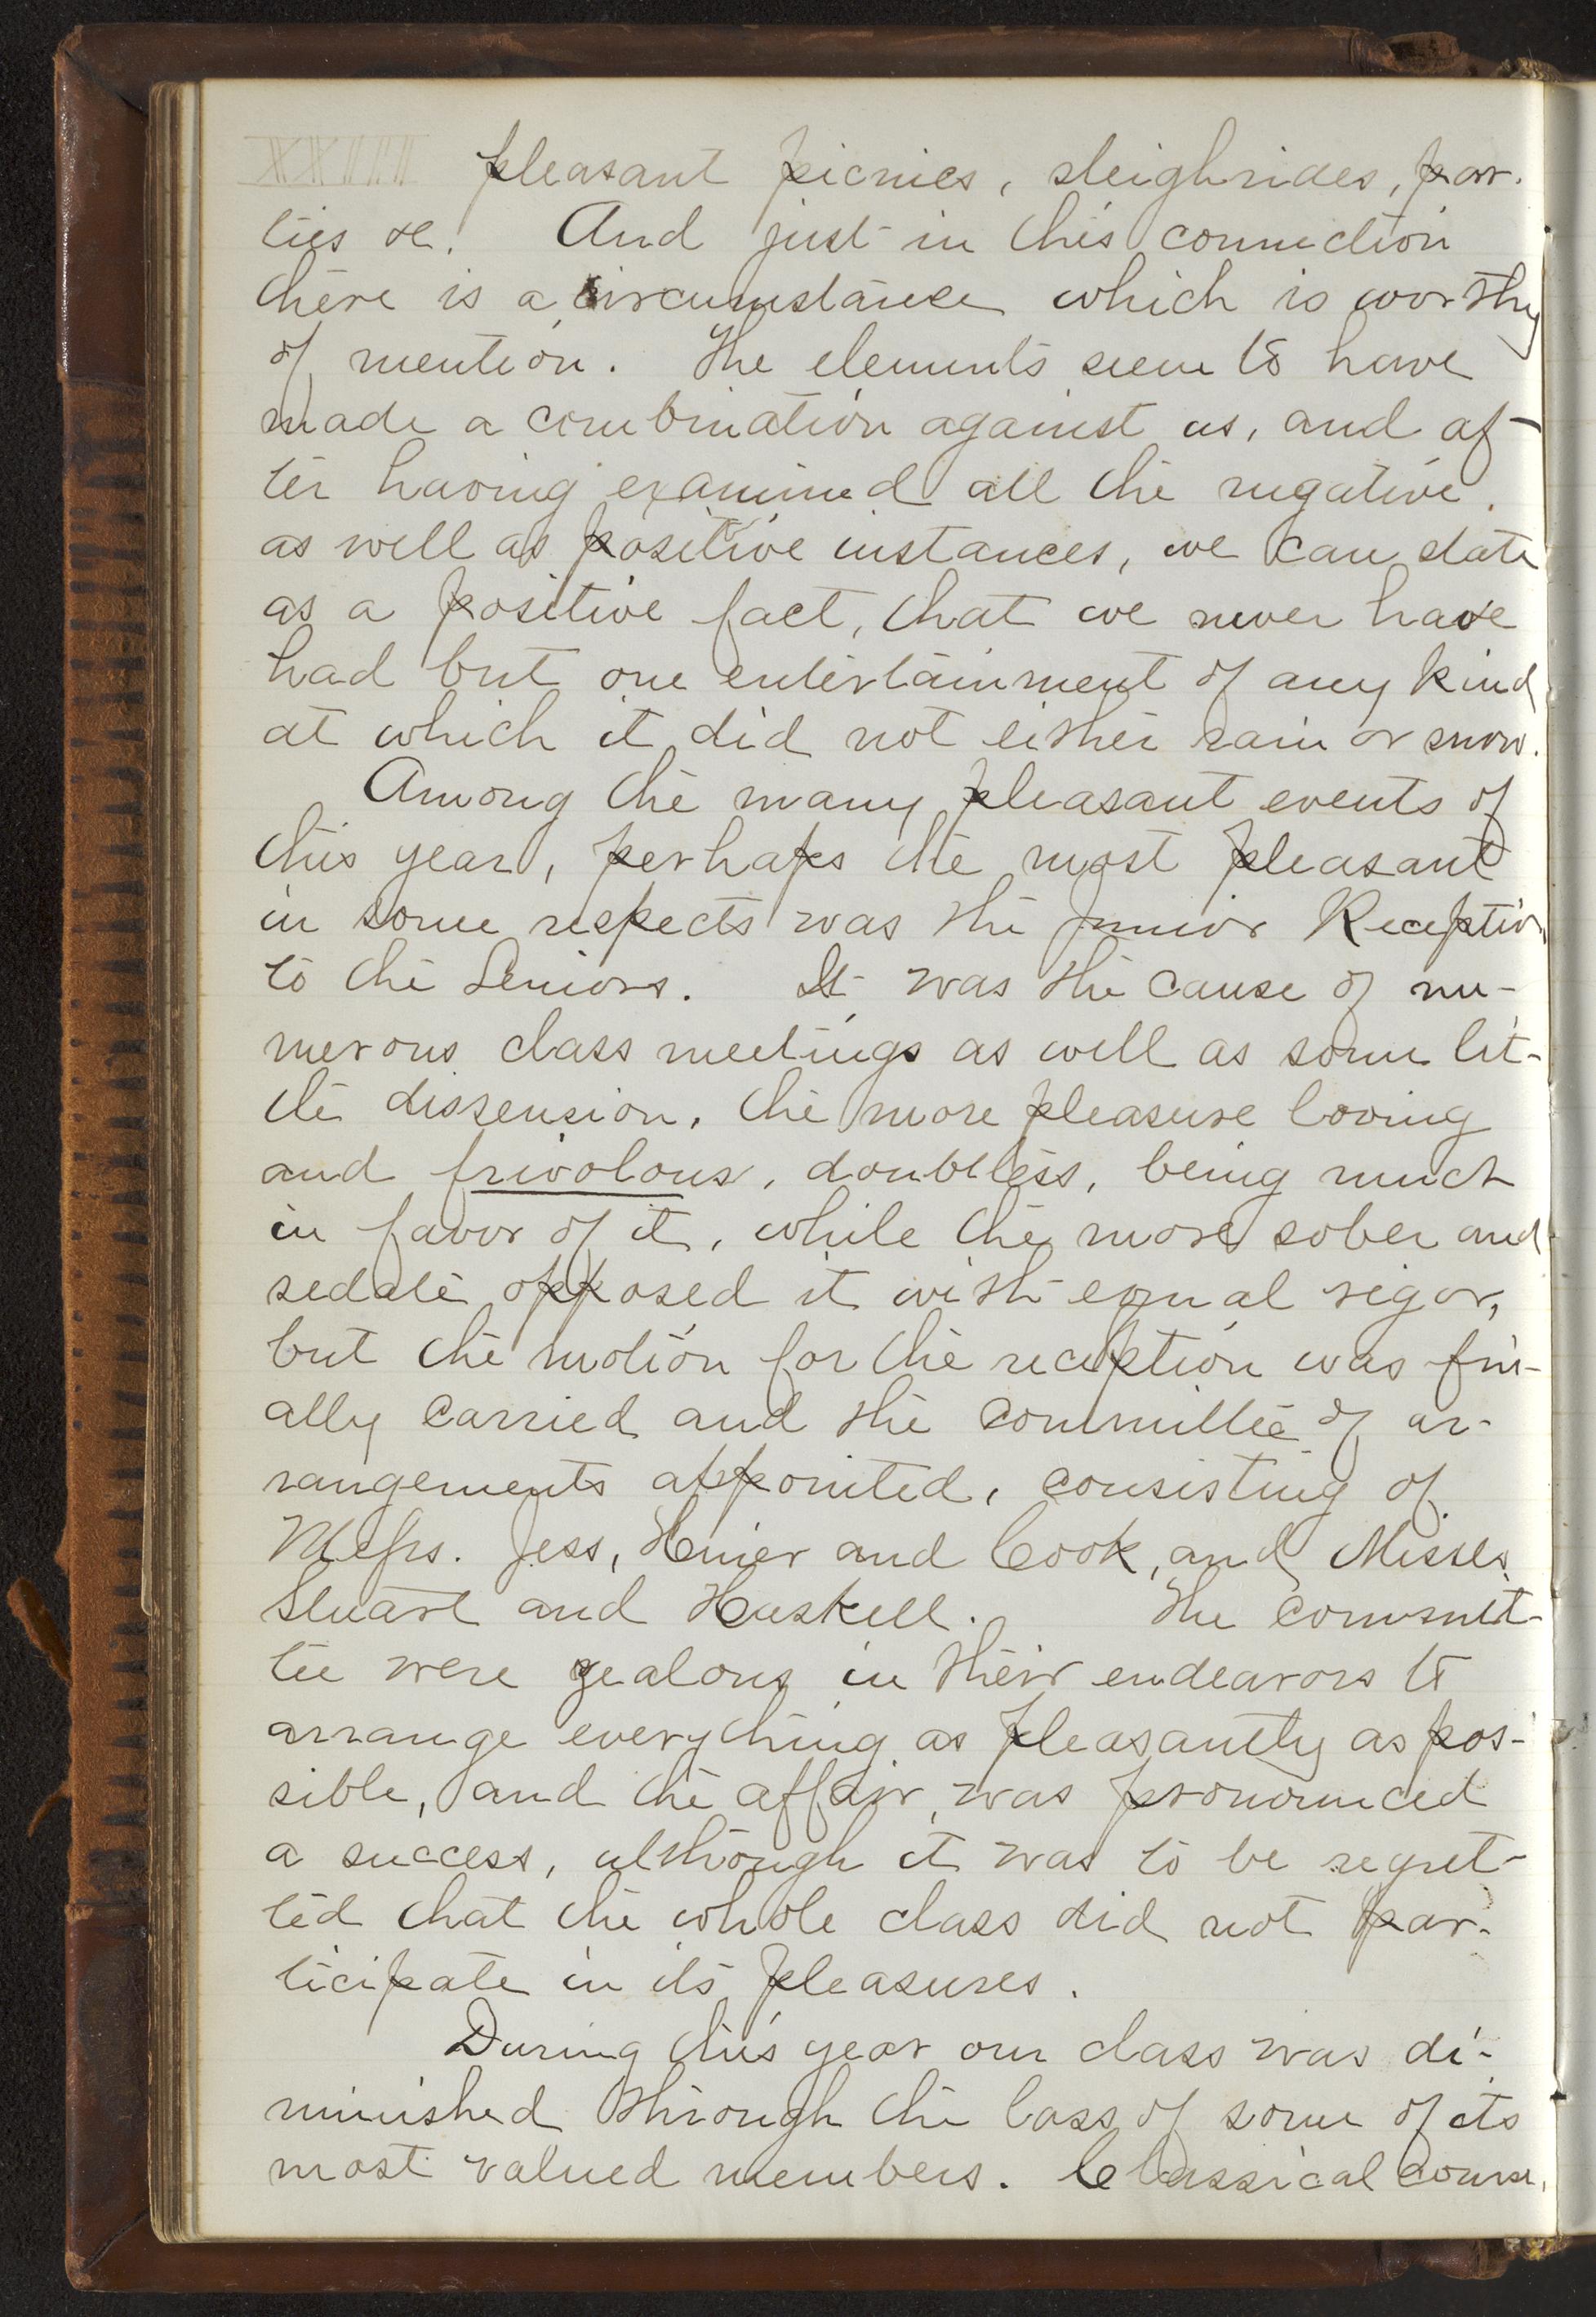 XXIIII pleasant picnics, sleighrides, par-
ties &c. And just in this connection
there is a circumstance which is worthy
of mention. The elements seem to have
made a combination against us, and af-
ter having examined all the negative,
as well as positive instances, we can state
as a positive fact, that we never have
had but one entertainment of any kind
at which it did not either rain or snow.
Among the many pleasant events of
this year, perhaps the most pleasant
in some respects was the Junior Reception
to the Seniors. It was the cause of nu-
merous class meetings as well as some lit-
tle dissension, the more pleasure loving
and frivolous, doubtless, being much
in favor of it, while the more sober and
sedate opposed it with equal vigor,
but the motion for the reception was fin-
ally carried and the committee of ar-
rangements appointed, consisting of
Messrs. Jess, and Cook, and Misses
Stuart and Haskell. The commit-
tee were zealous in their endeavors to
arrange everything as pleasantly as pos-
sible, and the affair was pronounced
a success, although it was to be regret-
ted that the whole class did not par-
ticipate in its pleasures.
During this year our class was di-
minished through the loss of some of its
most valued members. Classical Course,